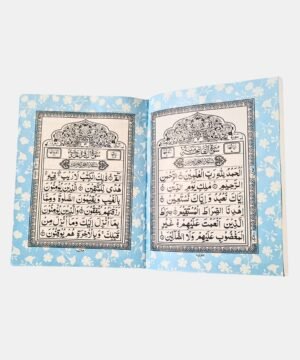 سُوْرَةُ الْفَاتِحَةِ
اَلْحَمْدُ لِلّٰهِ رَبِّ الْعٰلَمِيْنَ الرَّحْمٰنِ
الرَّحِيْمِ مٰلِكِ يَوْمِ الدِّيْنِ اِيَّاكَ
نَعْبُدُ وَاِيَّاكَ نَسْتَعِيْنُ
اِهْدِنَا الصِّرَاطَ الْمُسْتَقِيْمَ صِرَاطَ
الَّذِيْنَ اَنْعَمْتَ عَلَيْهِمْ غَيْرِ
الْمَغْضُوْبِ عَلَيْهِمْ وَلَا الضَّآلِّيْنَ
سُوْرَةُ الْبَقَرَةِ
الٓمّٓ ذٰلِكَ الْكِتٰبُ لَا رَيْبَ فِيْهِ
هُدًى لِّلْمُتَّقِيْنَ الَّذِيْنَ يُؤْمِنُوْنَ
بِالْغَيْبِ وَيُقِيْمُوْنَ الصَّلٰوةَ وَمِمَّا
رَزَقْنٰهُمْ يُنْفِقُوْنَ وَالَّذِيْنَ يُؤْمِنُوْنَ
بِمَآ اُنْزِلَ اِلَيْكَ وَمَآ اُنْزِلَ مِنْ
قَبْلِكَ وَبِالْاٰخِرَةِ هُمْ يُوْقِنُوْنَ